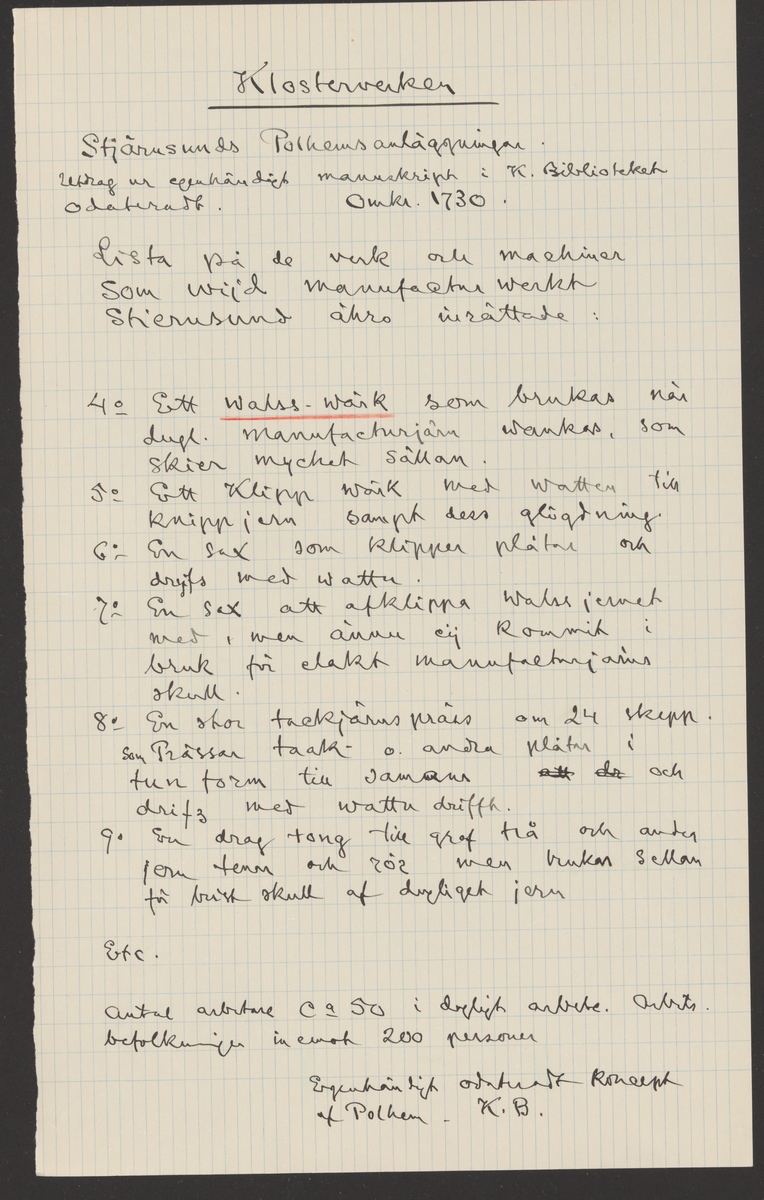 Klosterverken
Stjärnsunds Polhemsanläggningar.
Utdrag ur egenhändigt manuskript i K. Biblioteket
odateradt. Omkr. 1730.
Lista på de verk och machiner
Som wijd manufactur werkt
Stiernsund ähro inrättade:
4o Ett walss-wärk som brukas när
dugl. manufacturjärn wankas, som
skier mycket sällan.
5o Ett Klipp wärk med watten till
knippjern sampt dess glögdning.
6o En sax som klipper plåtar och
drijfs med wattn.
7o En sax att afklippa walssjernet
med, men ännu eij kommit i
bruk för elakt manufacturjärns
skull.
8o En stor tackjärnspräss om 24 skepp.
som Prässar taak- o. andra plåtar i
tun form till samans att och
drifz med wattn driffh.
9o En drag tong till graf trå och andra
jern tenar och rör men brukas sellan
för brist skull af dugliget jern
Etc.
Antal arbetare Ca 50 i dagligt arbete. Arbets.
befolkningen inemot 200 personer
Egenhändigt odateradt koncept
af Polhem - K.B.